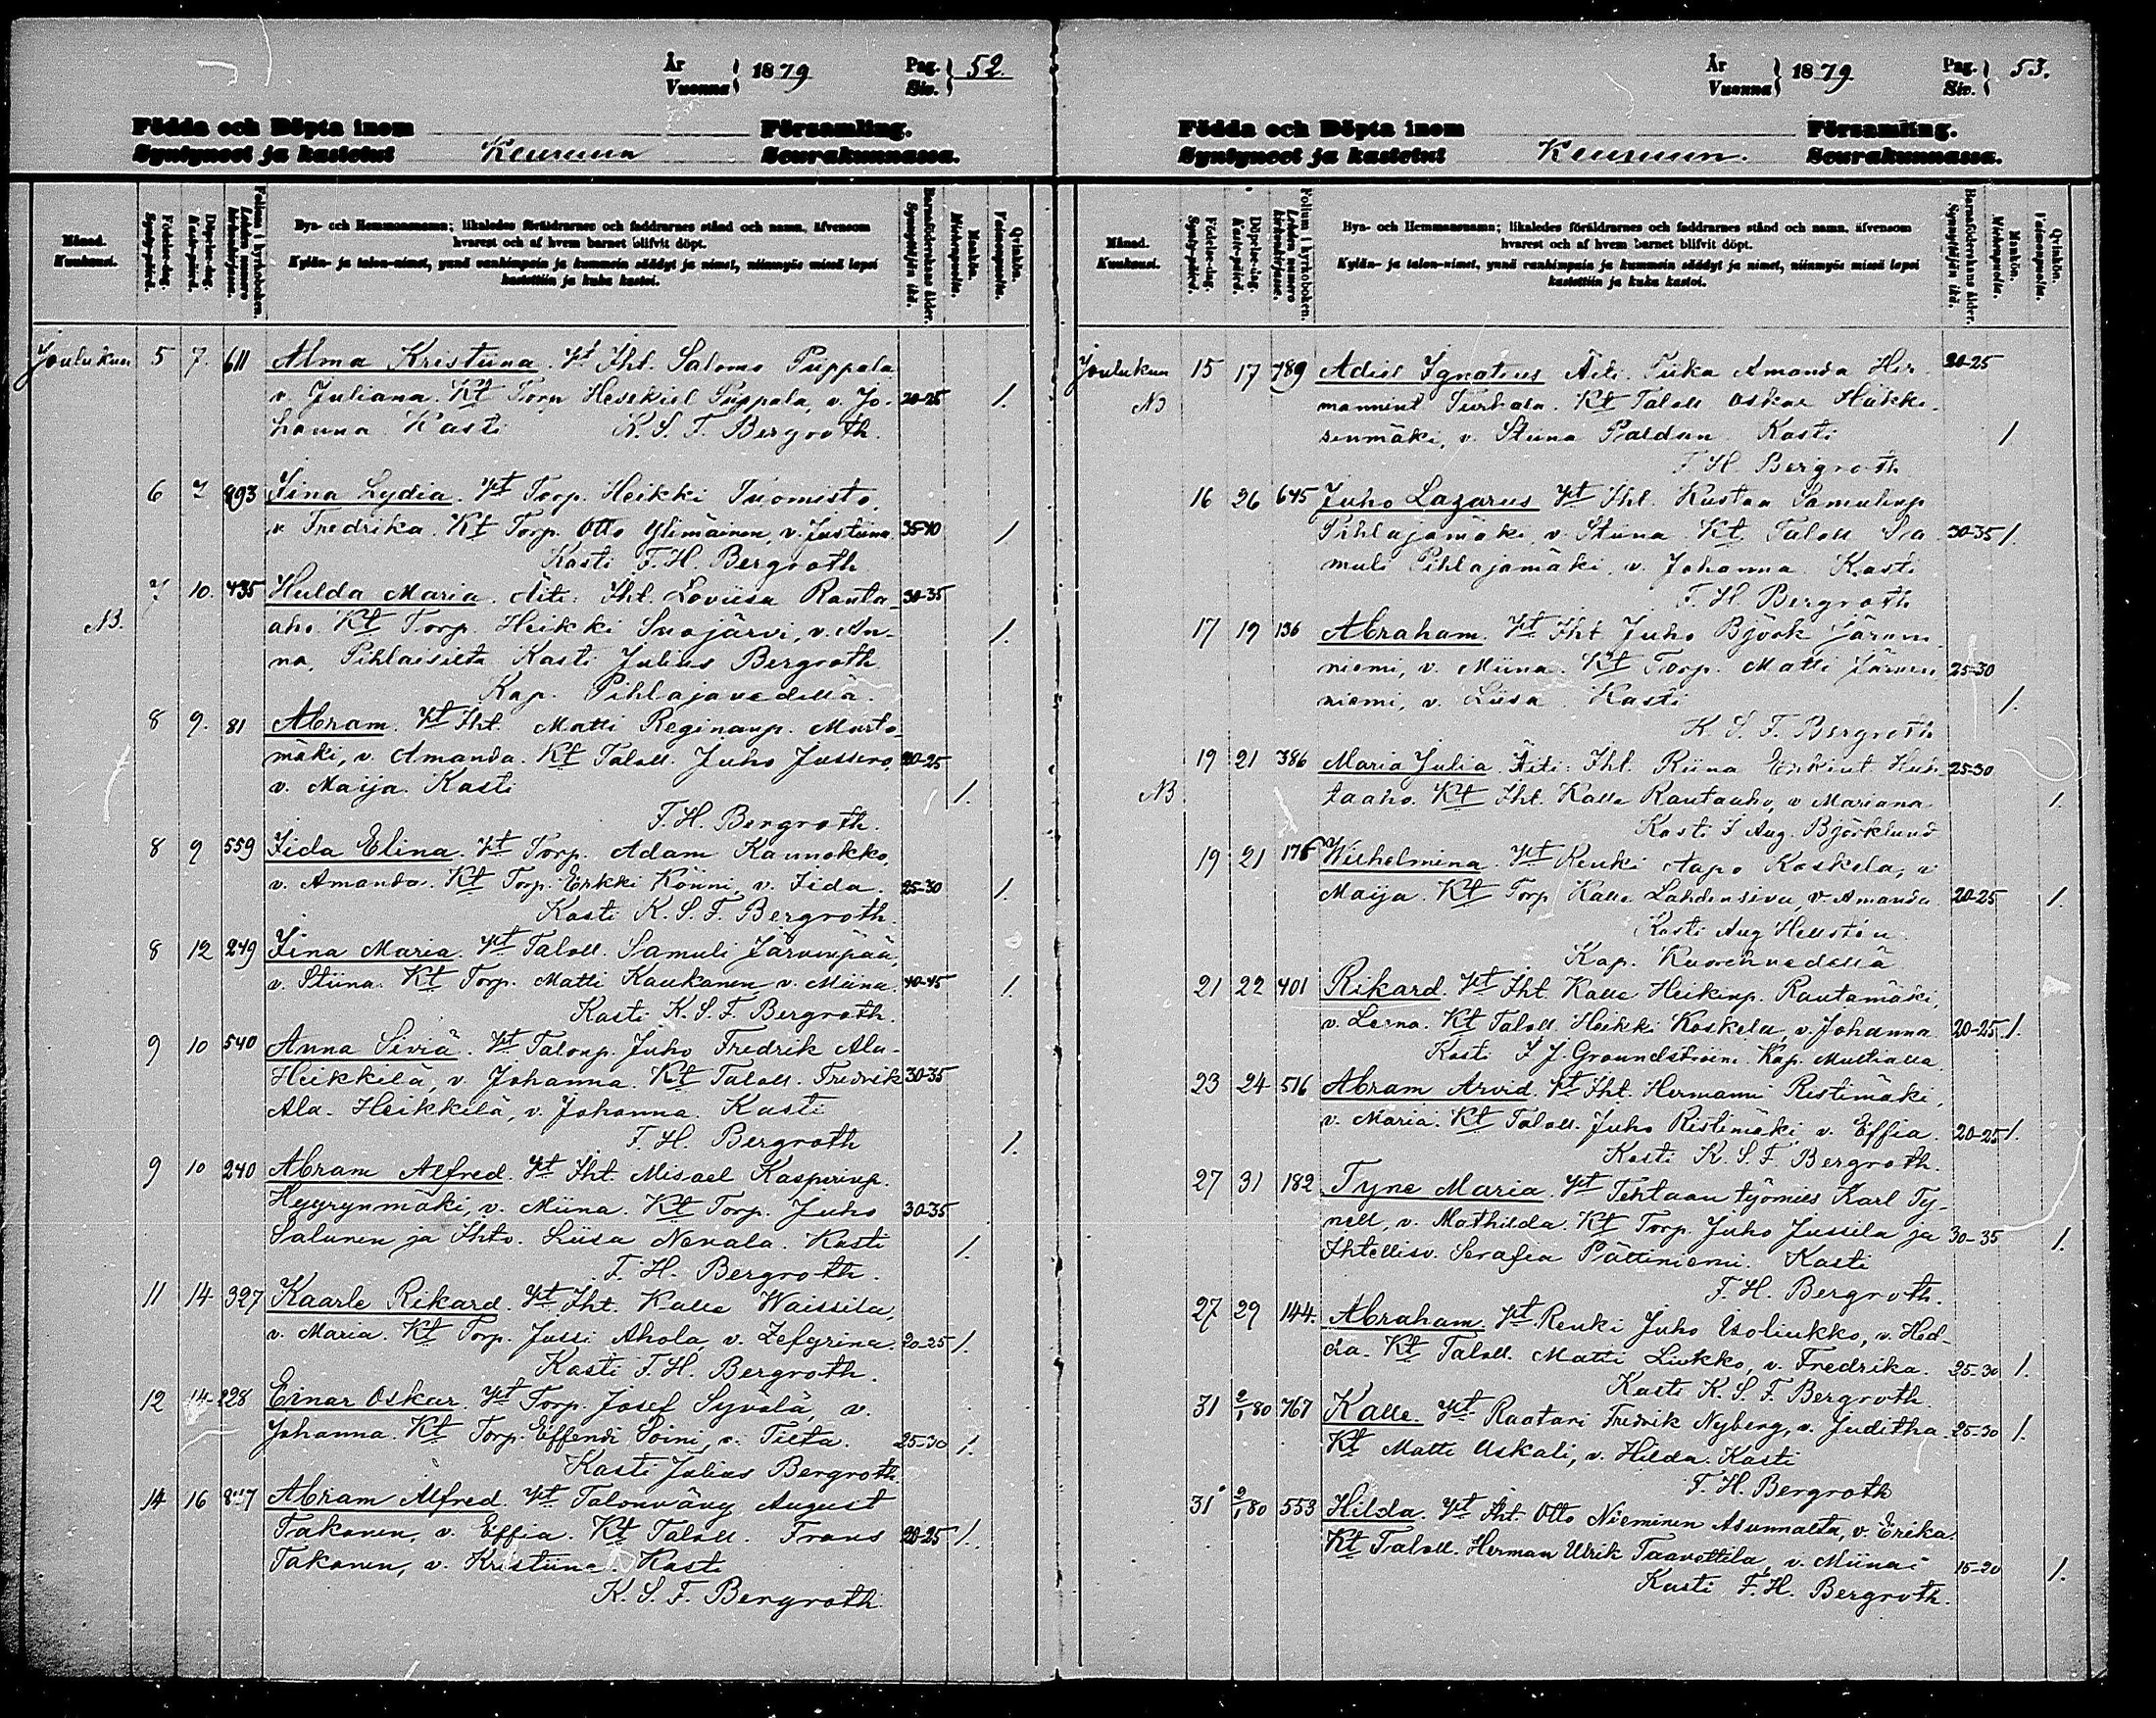 År
Vuonna } 1879 Pag.
Siv. } 52.
Födda och Döpta inom Församling.
Syntyneet ja kastetut Keuruun Seurakunnassa.
Månad.
Kuukausi.
Födelse-dag.
Synty-päivä.
Döpelse-dag.
Kaste-päivä.
Folium i kyrkoboken.
Lehden numero kirkonkirjassa.
Bya- och Hemmansnamn; likaledes föräldrarnes och faddrarnes stånd och namn, äfvensom
hvarest och af hvem barnet blifvit döpt.
Kylän- ja talon-nimet, ynnä vanhimpain ja kummein säädyt ja nimet, niinmyös missä lapsi
kastettiin ja kuka kastoi.
Barnaföderskans ålder.
Synnyttäjän ikä.
Mankön.
Miehenpuolta.
Qvinkön.
Vaimonpuolta.
Joulukuu 5 7. 611 Alma Kristiina. Vt Iht. Salomo Puppala
v. Juliana. Kt Torp Hesekiel Puppala, v. Jo- 20-25 1.
hanna Kasti K. S. F. Bergroth.
6 7 893 Iina Lydia. Vt Torp. Heikki Tuomisto,
v Fredrika. Kt Torp. Otto Ylimäinen, v. Justiina 35-40 1
Kasti F. H. Bergroth
7 10. 435 Hulda Maria. Äiti: Iht. Loviisa Ranta- 30-35
NB. aho. Kt Torp. Heikki Suojärvi, v. An- 1.
na, Pihlaisilta Kasti Julius Bergroth
Kap. Pihlajavedellä.
8 9. 81 Abram. Vt Iht. Matti Reginanp. Murto-
mäki, v. Amanda. Kt Taloll. Juho Jussero, 20-25
v. Maija. Kasti 1.
F. H. Bergroth.
8 9 559 Iida Elina. Vt Torp. Adam Kaunokko,
v. Amanda. Kt Torp. Erkki Könni, v. Iida. 25-30 1.
Kasti K. S. F. Bergroth.
8 12 249 Iina Maria. Vt Taloll. Samuli Järvenpää,
v. Stiina. Kt Torp. Matti Kaukanen v. Miina. 40-45 1.
Kasti K. S. F. Bergroth.
9 10 540 Anna Siviä. Vt Talonp. Juho Fredrik Ala-
Heikkilä, v. Johanna. Kt Taloll. Fredrik 30-35
Ala-Heikkilä, v. Johanna. Kasti
F. H. Bergroth 1.
9 10 240 Abram Alfred. Vt Iht. Misael Kasperinp.
Hyyrynmäki, v. Miina. Kt Torp. Juho 30-35
Salunen ja Ihtv. Liisa Nevala. Kasti 1.
F. H. Bergroth.
11 14 327 Kaarle Rikard. Vt Iht. Kalle Waissila,
v. Maria. Kt Torp. Jussi Ahola, v. Zefyrina. 20-25 1.
Kasti F. H. Bergroth.
12 14 228 Einar Oskar. Vt Torp. Josef Syvälä, v.
Johanna. Kt Torp. Effendi Soini, v. Tilta. 25-30 1.
Kasti Julius Bergroth.
14 16 Abram Alfred. Vt Talonvävy August
Takanen, v. Effia. Kt Taloll. Frans 20-25 1.
Takanen, v. Kristiina. Kasti
K. S. F. Bergroth
År
Vuonna } 1879 Pag.
Siv. } 53.
Födda och Döpta inom Församling.
Syntyneet ja kastetut Keuruun. Seurakunnassa.
Månad.
Kuukausi.
Födelse-dag.
Synty-päivä.
Döpelse-dag.
Kaste-päivä.
Folium i kyrkoboken.
Lehden numero kirkonkirjassa.
Bya- och Hemmansnamn; likaledes föräldrarnes och faddrarnes stånd och namn, äfvensom
hvarest och af hvem barnet blifvit döpt.
Kylän- ja talon-nimet, ynnä vanhimpain ja kummein säädyt ja nimet, niinmyös missä lapsi
kastettiin ja kuka kastoi.
Barnaföderskans ålder.
Synnyttäjän ikä.
Mankön.
Miehenpuolta.
Qvinkön.
Vaimonpuolta.
Joulukuu 15 17 789 Adiel Ignatius Äiti. Piika Amanda Her- 20-25
NB mannint. Turhala. Kt Taloll Oskar Häkki-
senmäki, v. Stiina Paldan. Kasti 1
F. H. Bergroth
16 26 645 Juho Lazarus Vt Iht. Kustaa Samulinp
Pihlajamäki, v. Stiina. Kt. Taloll Sa- 30-35 1.
muli Pihlajamäki, v. Johanna. Kasti
F. H. Bergroth
17 19 136 Abraham. Vt Iht Juho Björk Järven-
niemi, v. Miina. Kt Torp. Matti Järven 25-30
niemi, v. Liisa. Kasti 1.
K. S. F. Bergroth
19 21 386 Maria Julia. Äiti: Iht. Riina Erkint. Huh- 25-30
NB. taaho. Kt Iht. Kalle Rautaaho, v Mariana 1.
Kasti I Aug. Björklund
19 21 Wilhelmina. Vt Renki Aapo Koskela, v
Maija. Kt Torp Kalle Lahdensivu, v. Amanda 20-25 1.
Kasti Aug Hellstén
Kap. Kuorehvedellä
21 22 401 Rikard. Vt Iht. Kalle Heikinp. Rautamäki,
v. Leena. Kt Taloll. Heikki Koskela, v. Johanna 20-25 1.
Kasti F J. Groundstroem. Kap. Multialla
23 24 516 Abram Arvid. Vt Iht. Hermanni Ristimäki,
v. Maria. Kt Taloll. Juho Ristimäki v. Effia. 20-25 1.
Kasti K. S. F. Bergroth.
27 31 182 Tyne Maria. Vt Tehtaan työmies Karl Ty-
nell, v. Mathilda. Kt Torp. Juho Jussila ja 30-35 1.
Ihtellisv. Serafia Pättiniemi. Kasti
F. H. Bergroth.
27 29 144. Abraham. Vt Renki Juho Isoliukko, v. Hed-
da. Kt Taloll. Matti Liukko, v. Fredrika. 25-30 1.
Kasti K. S. F. Bergroth.
31 2/1 80 767 Kalle. Vt Raatari Fredrik Nyberg, v. Juditha. 25-30 1.
Kt Matti Uskali, v. Hilda. Kasti
F. H. Bergroth
31 2/1 80 553 Hilda. Vt Iht. Otto Nieminen Asunnalta, v. Erika.
Kt Taloll. Herman Ulrik Taavettila, v. Miina. 15-20 1.
Kasti F. H. Bergroth.